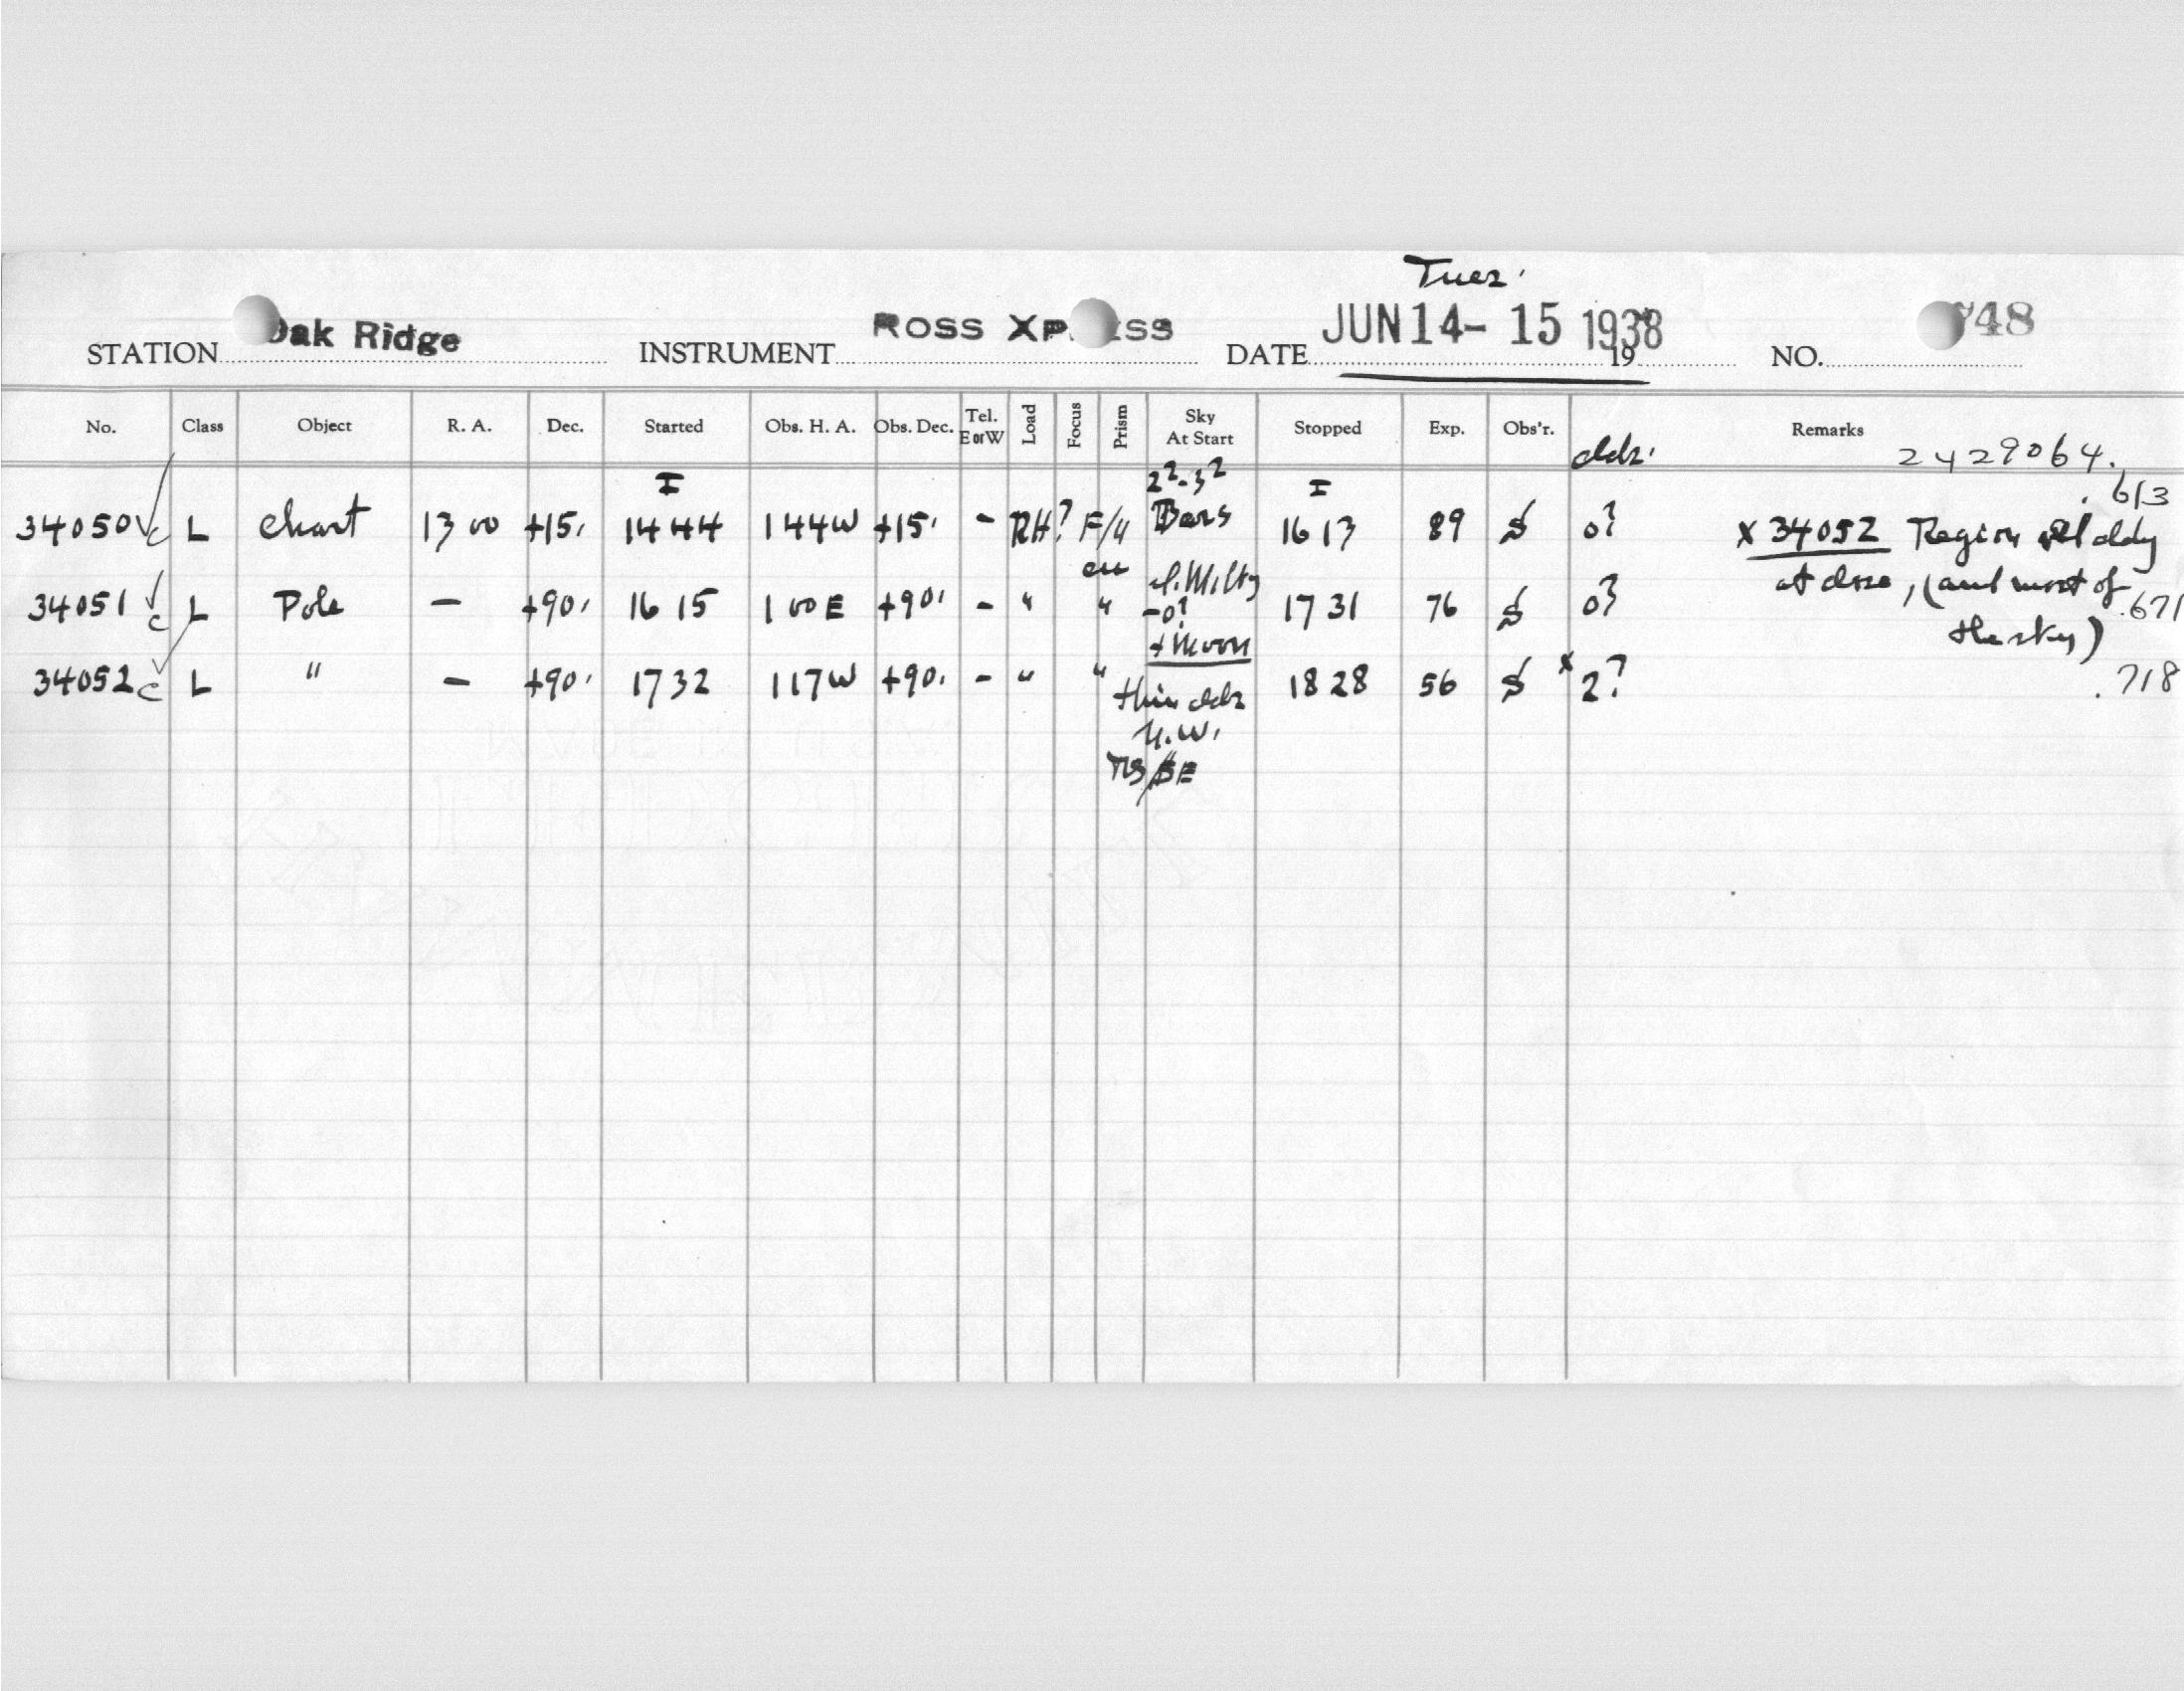 Tues.
STATION Oak Ridge INSTRUMENT ROSS XPRESS DATE JUN 14-15 1938 19 NO. 748
No. Class Object R. A. Dec. Started Obs. H. A. Obs. Dec. Tel. E or W Load Focus Prism Sky At Start Stopped Exp. Obs'r. clds. Remarks 2429064.
I 2²-3² I .613
34050 √c L Chart 13 00 +15. 14 44 1 44 W +15. - RH ? F/4 Bars 16 13 89 0? x 34052 Region cldy
at close, (and most of
34051 √c L Pole - +90. 16 15 1 00 E +90. - " " -0? 17 31 76 0? .671
+ Moon the sky)
34052 √c L " - +90. 17 32 1 17 W +90. - " " thin clds 18 28 56 x 2? .718
N.W.